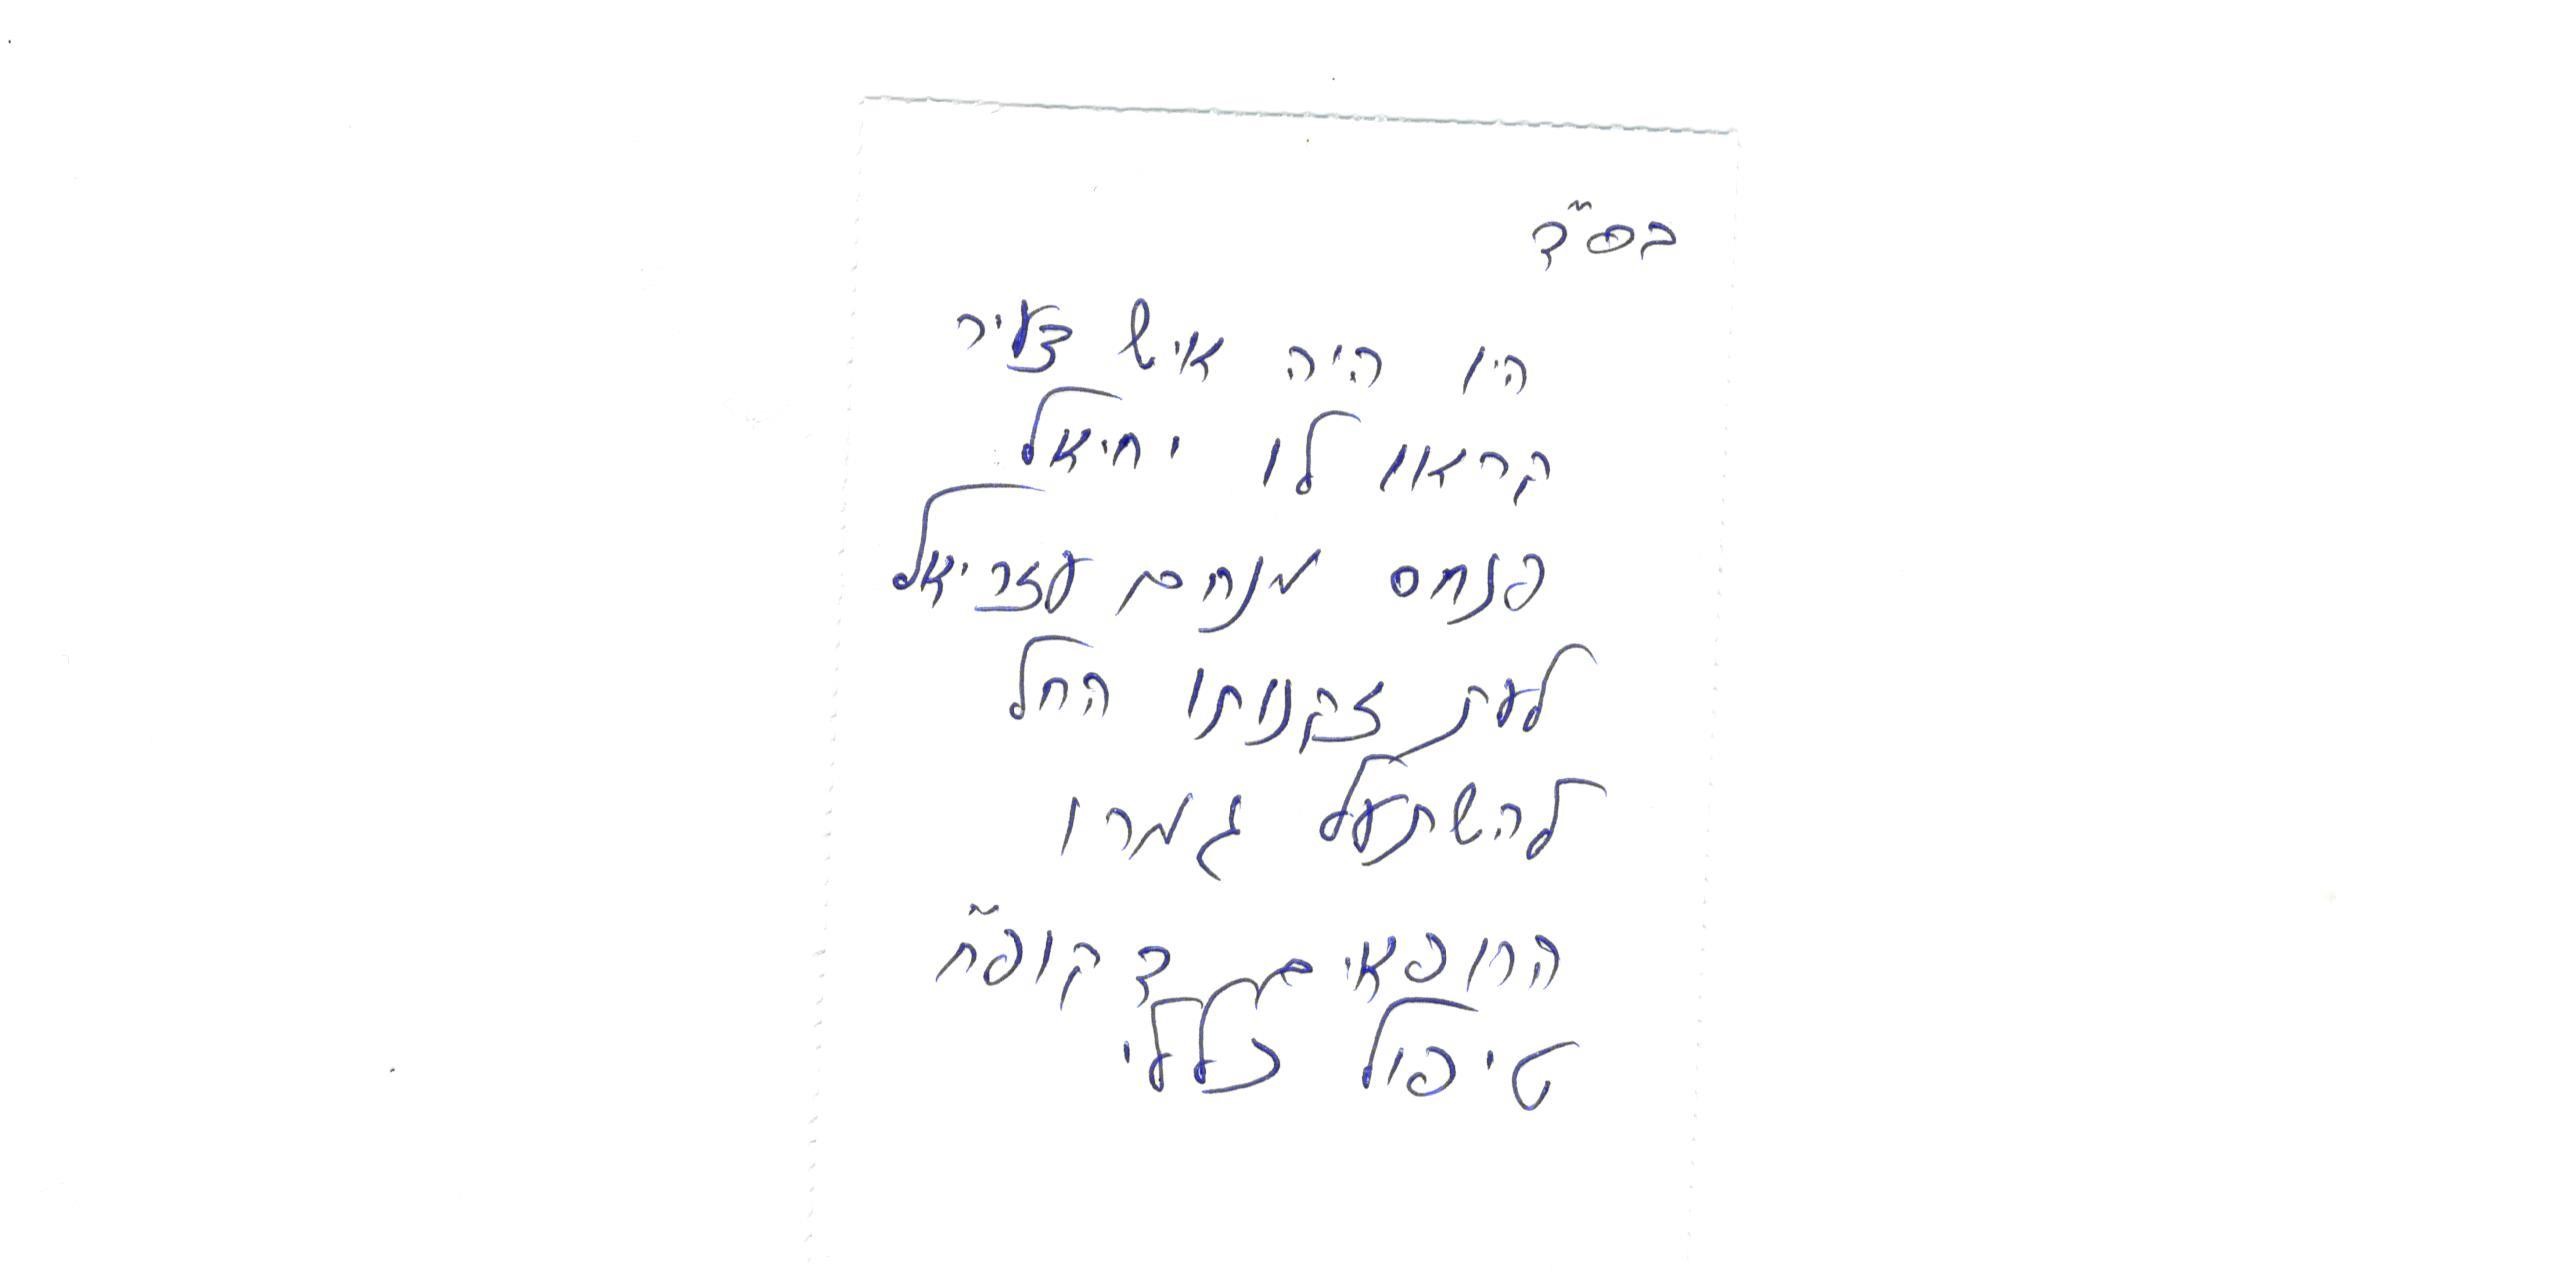 בס"ד
היו היה איש צעיר
קראו לו יחיאל
פנחס מנחם עזריאל
לעת זקנותו החל
להשתעל גמרו
הרופאים בקופ"ח
טיפול כללי